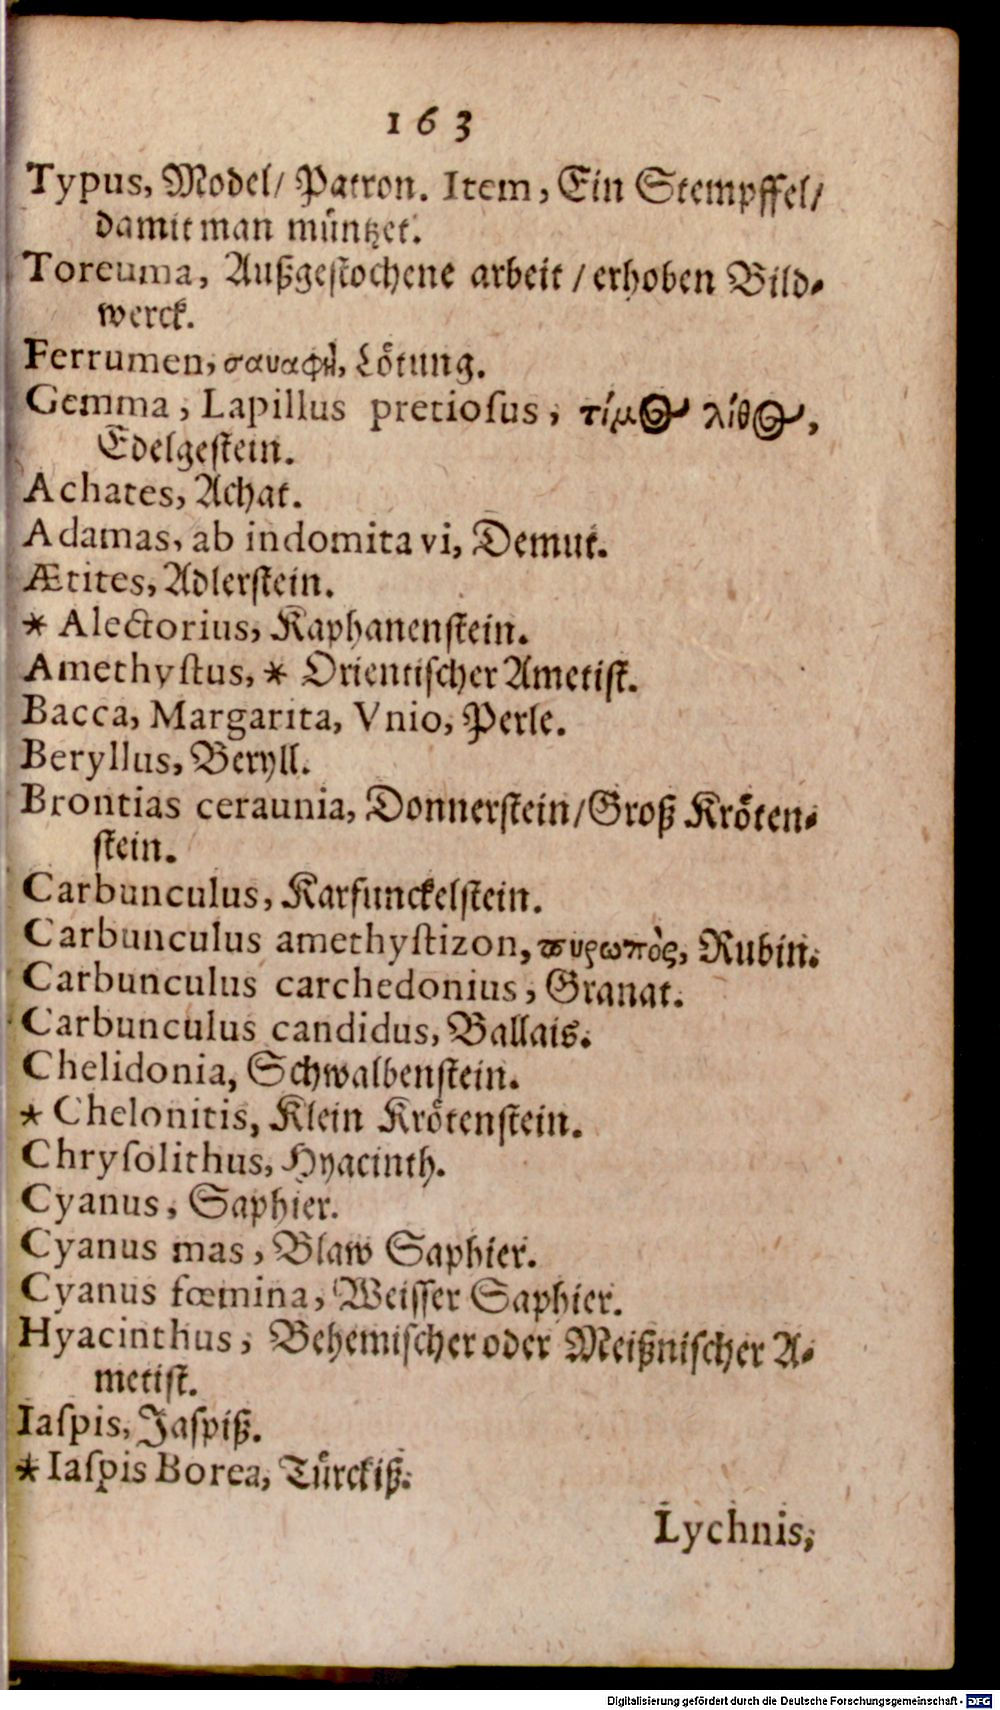 163
Typus, Model/ Patron. Item, Ein Stempffel/
damit man müntzet.
Toreuma, Außgestochene arbeit / erhoben Bild⸗
werck.
Ferrumen, Lötung.
Gemma, Lapillus pretiosus, τίμιος λίθος,
Edelgestein.
Achates, Achat.
Adamas, ab indomita vi, Demut.
Ætites, Adlerstein.
* Alectorius, Kaphanenstein.
Amethystus, * Orientischer Ametist.
Bacca, Margarita, Vnio, Perle.
Beryllus, Beryll.
Brontias ceraunia, Donnerstein/Groß Kröten⸗
stein.
Carbunculus, Karfunckelstein.
Carbunculus amethystizon, πυρωπὸς, Rubin.
Carbunculus carchedonius, Granat.
Carbunculus candidus, Ballais.
Chelidonia, Schwalbenstein.
* Chelonitis, Klein Krötenstein.
Chrysolithus, Hyacinth.
Cyanus, Saphier.
Cyanus mas, Blaw Saphier.
Cyanus fœmina, Weisser Saphier.
Hyacinthus, Behemischer oder Meißnischer A⸗
metist.
Iaspis, Jaspiß.
* Iaspis Borea, Türckiß.
Lychnis,
Digitalisierung gefördert durch die Deutsche Forschungsgemeinschaft - DFG